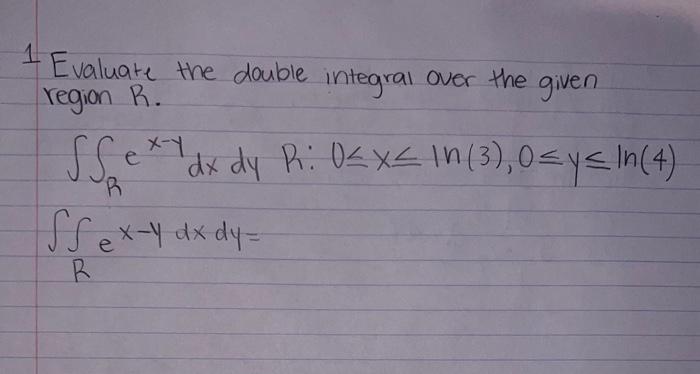 1 Evaluate the double integral over the given
region R.
∫∫_R e^{x-y} dx dy R: 0≤x≤ ln(3), 0≤y≤ ln(4)
∫∫_R e^{x-y} dx dy=